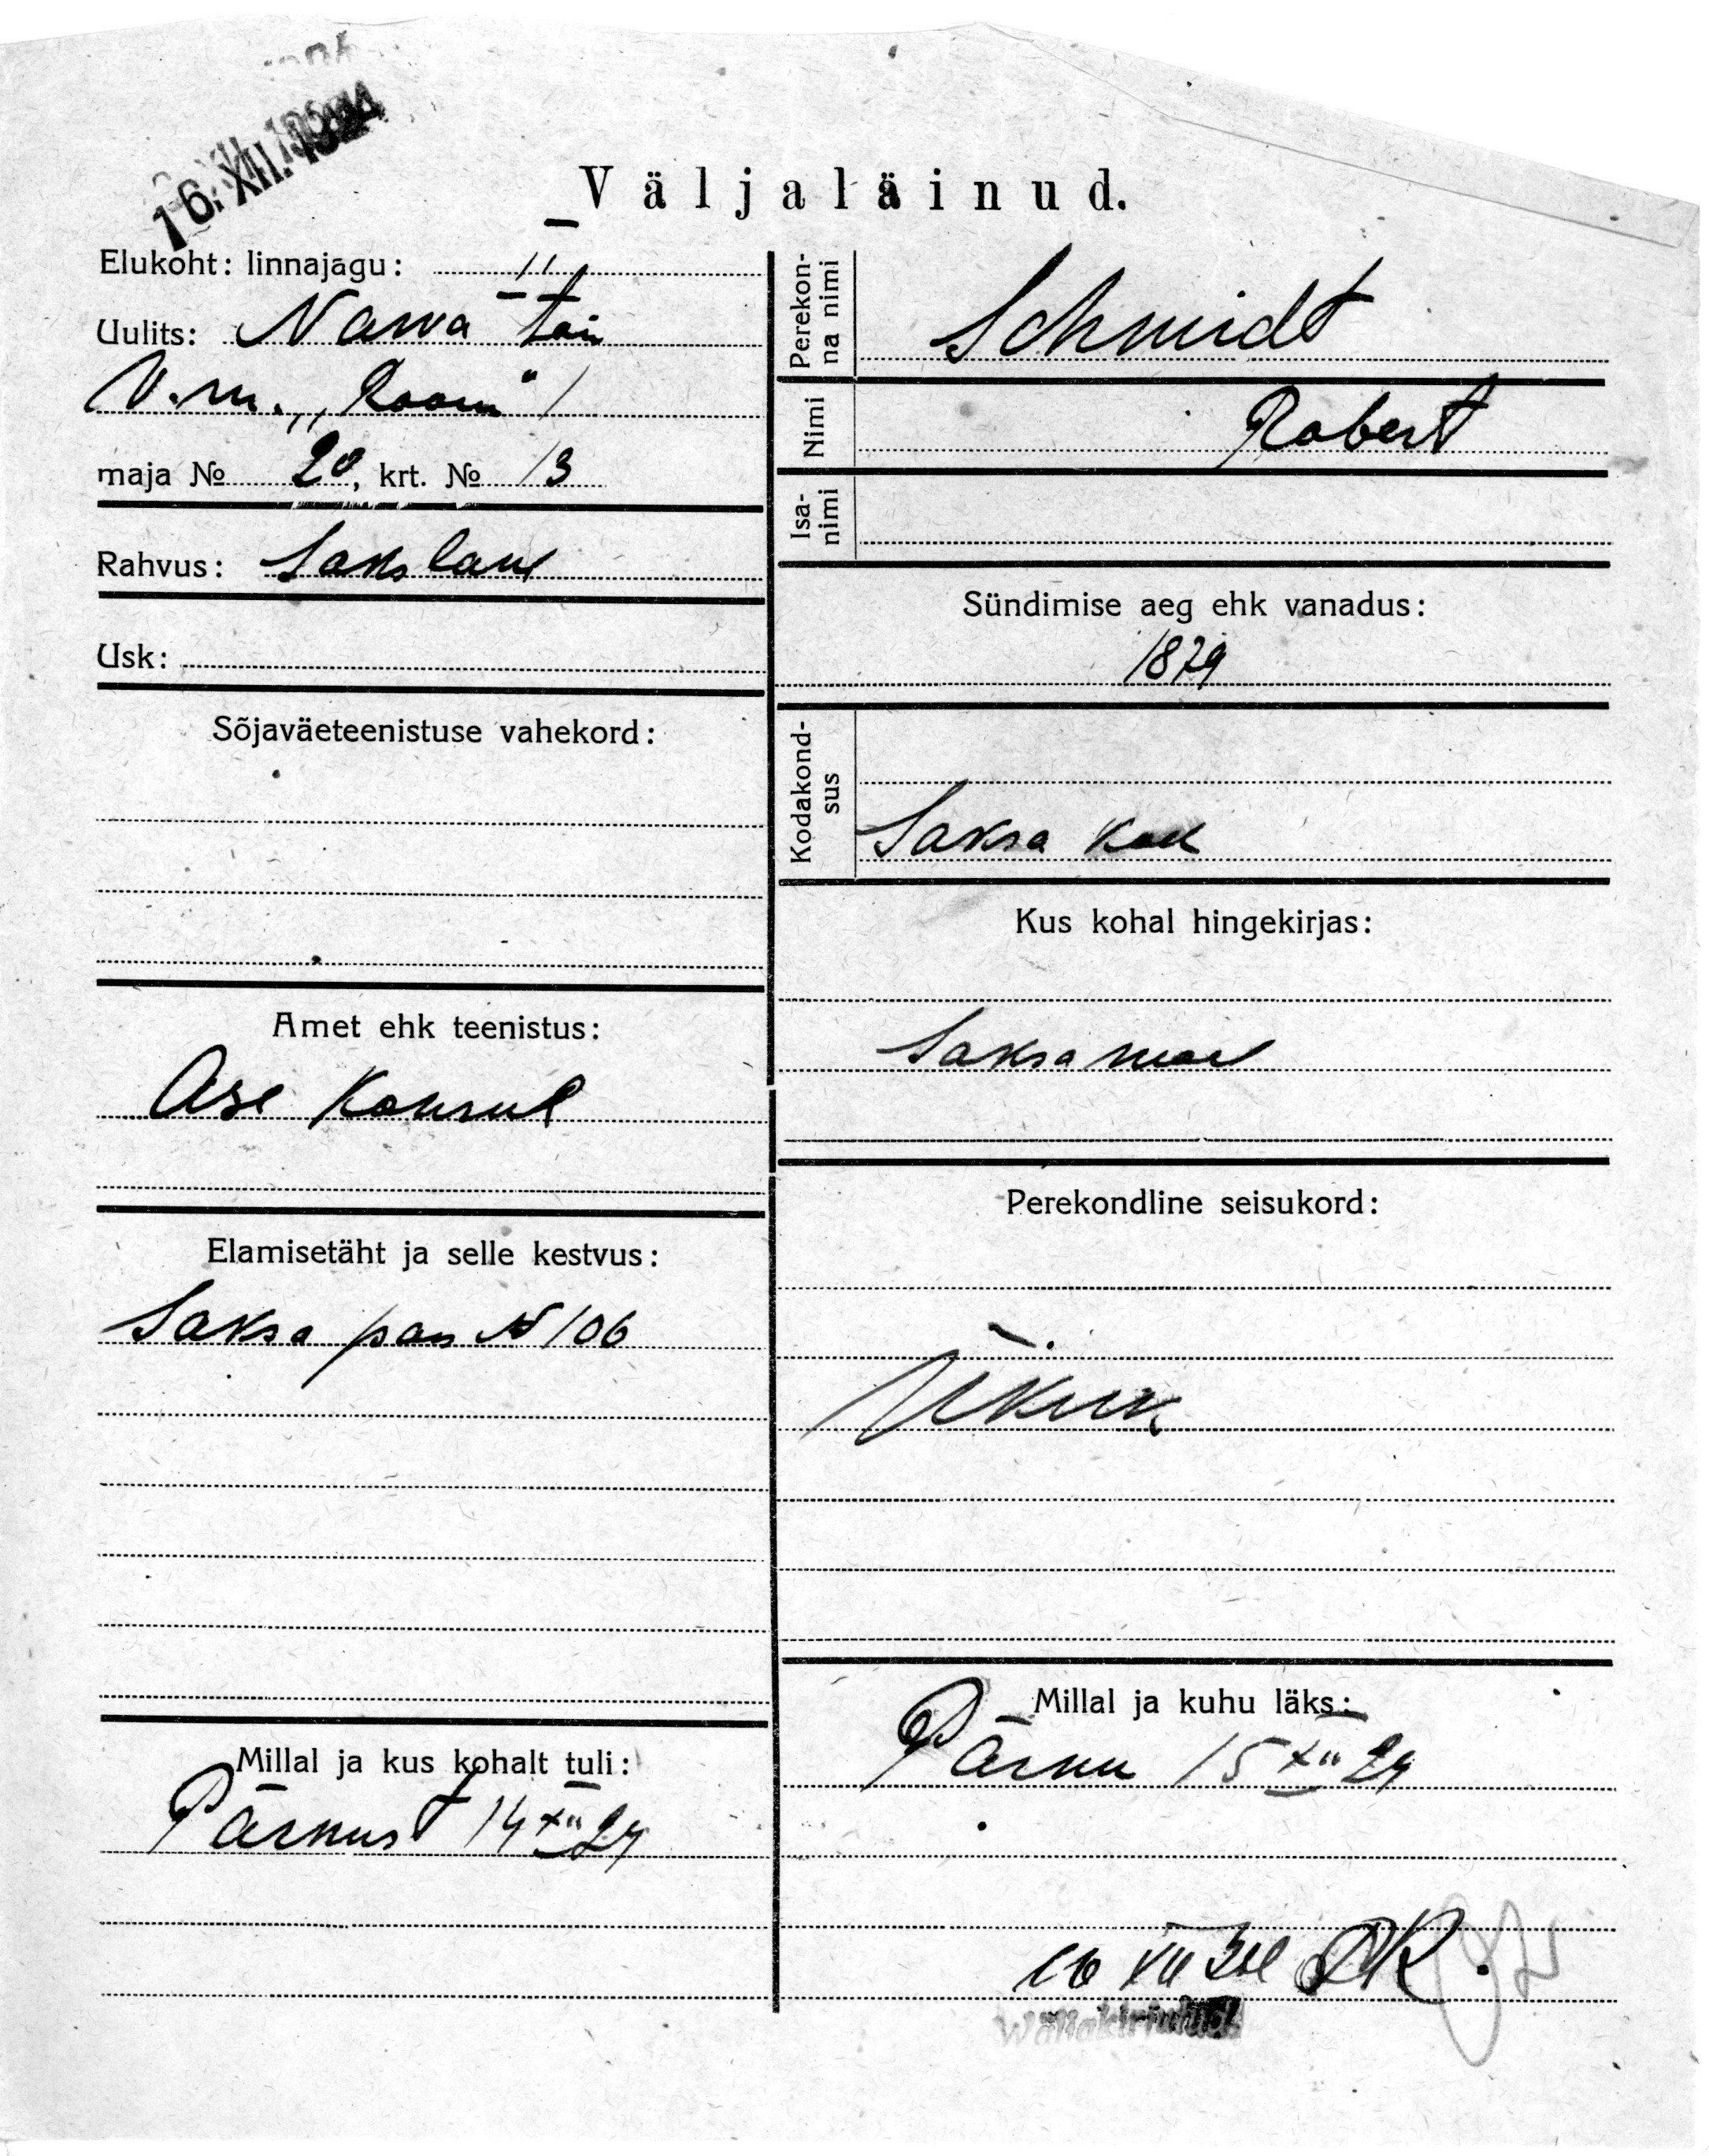 16. XII. 1924
Väljaläinud.
Elukoht: linnajagu: II
Uulits: Narva tän
V. m. „Room"
maja № 20, krt. № 13
Rahvus: Sakslane
Usk:
Sõjaväeteenistuse vahekord:
Amet ehk teenistus:
Ase Konsul
Elamisetäht ja selle kestvus:
Saksa pass N 106
Millal ja kus kohalt tuli:
Pärnust 14 XII 24
Perekon-
na nimi
Schmidt
Nimi
Robert
Isa-
nimi
Sündimise aeg ehk vanadus:
1879
Kodakond-
sus
Saksa kod
Kus kohal hingekirjas:
Saksamaal
Perekondline seisukord:
Üksik
Millal ja kuhu läks:
Pärnu 15 XII 24
16 XII
Wäljakirjutud